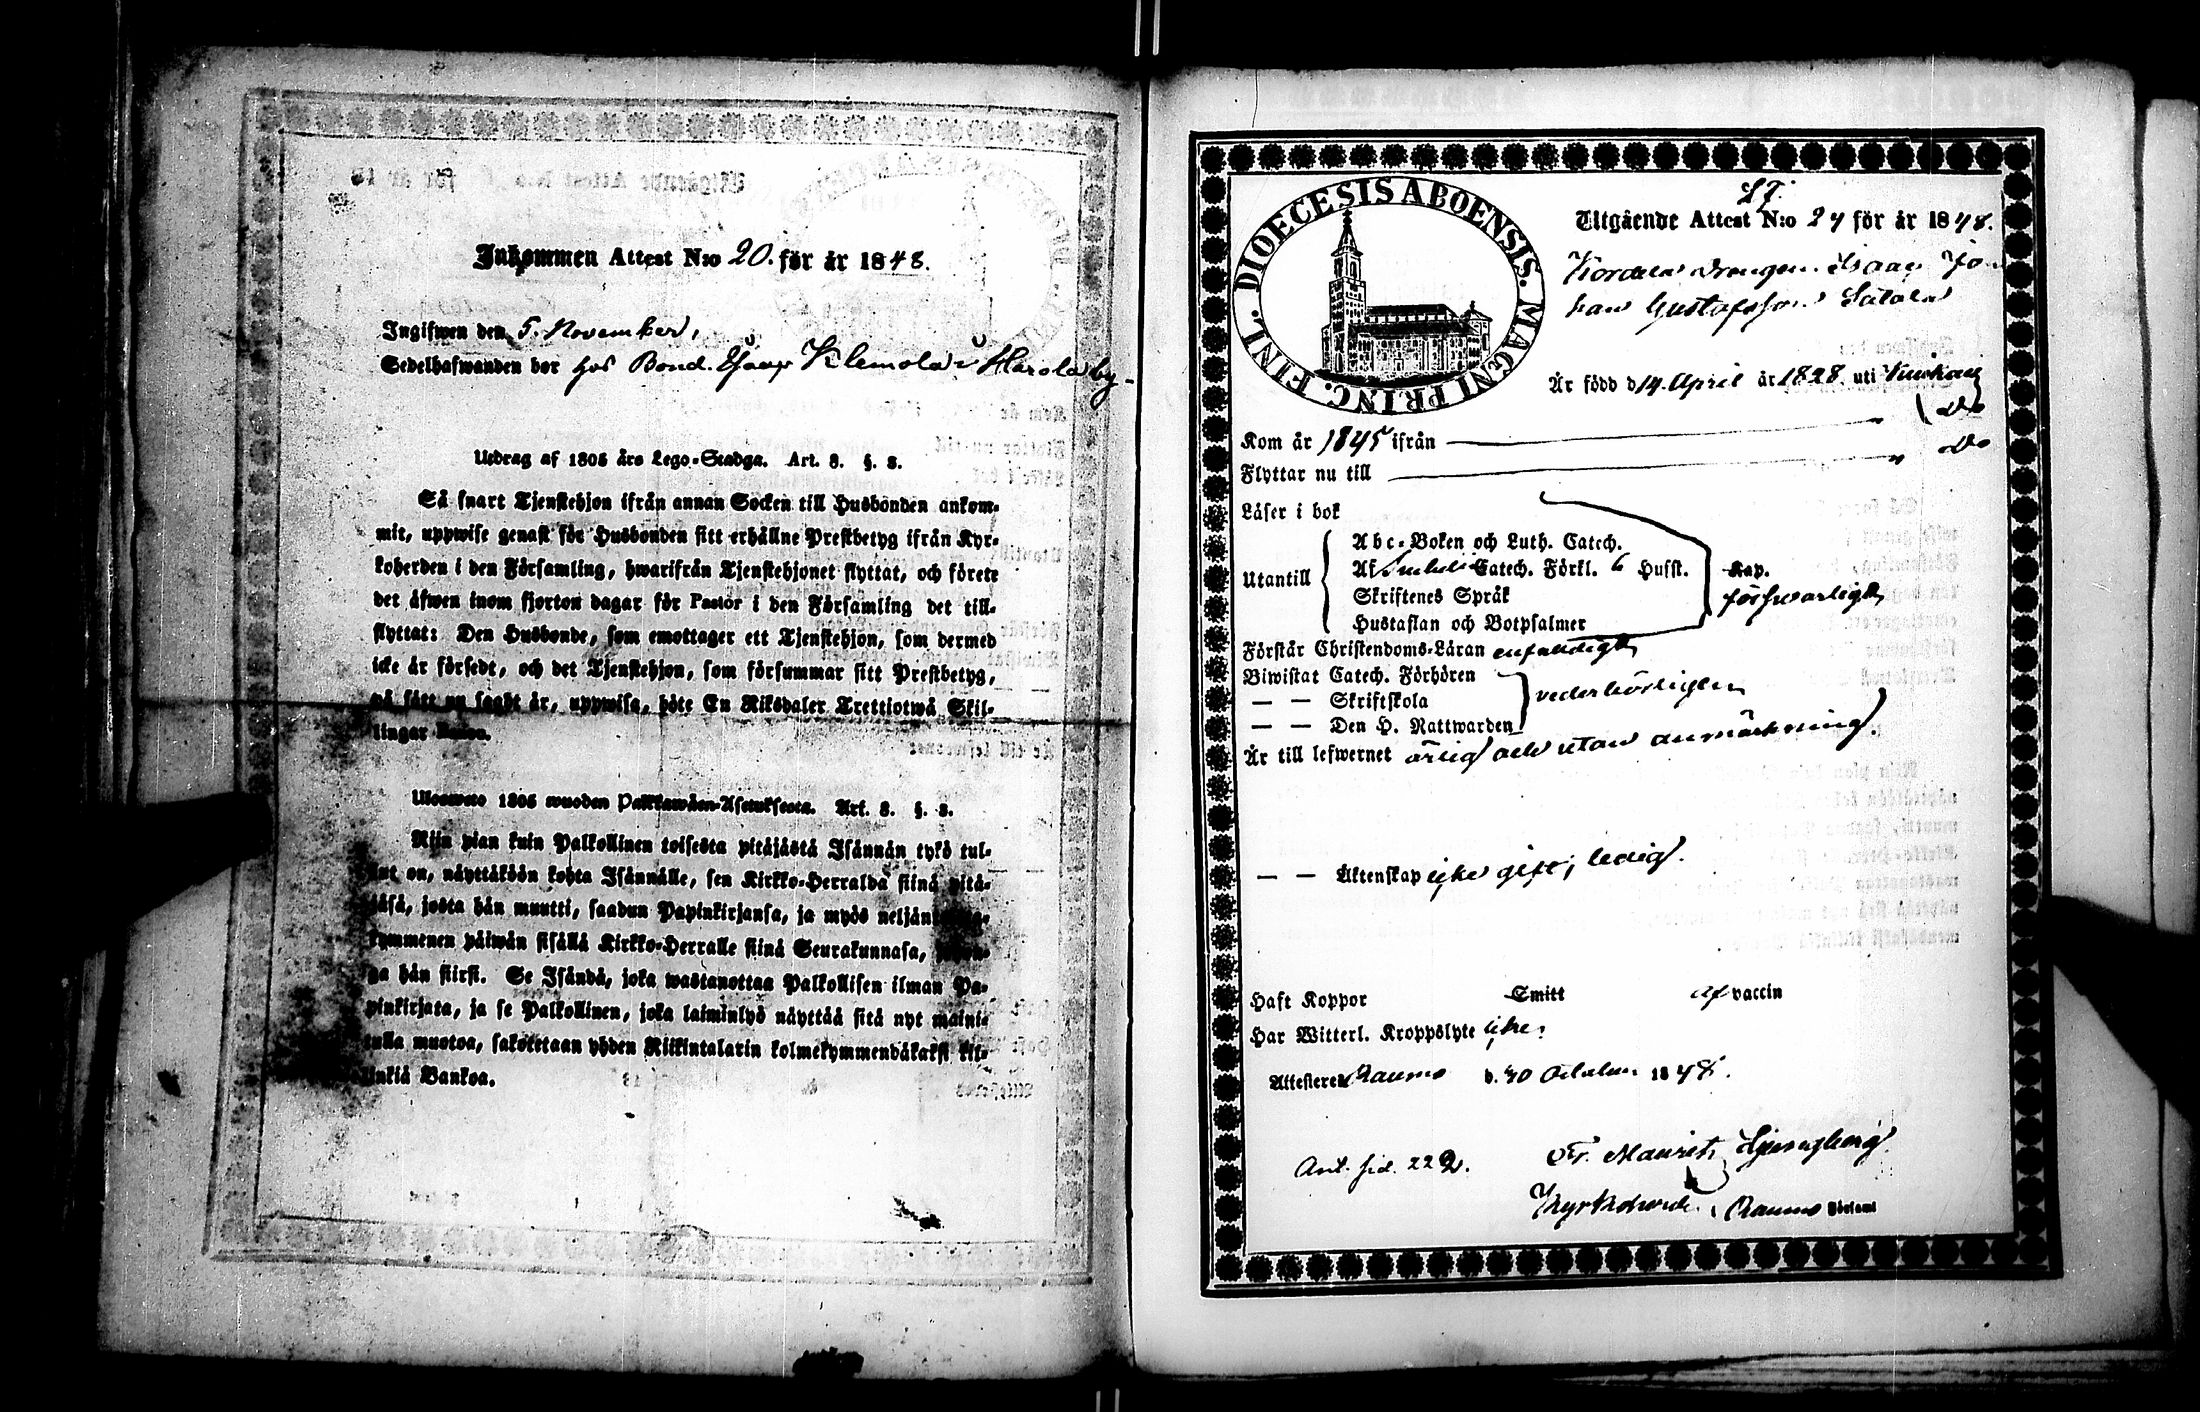 Inkommen Attest N:o 20. för år 1848.
Ingifwen den 5. November,
Sedelhafwanden bor hos Bond. Klemola i Harola by
Utdrag af 1805 års Lego-Stadga. Art. 8. §. 8.
Så snart Tjenstehjon ifrån annan Socken till Husbonden ankom-
mit, uppwise genast för Husbonden sitt erhållne Prestbetyg ifrån Kyr-
koherden i den Församling, hwarifrån Tjenstehjonet flyttat, och förete
det äfwen inom fjorton dagar för Pastor i den Församling det till-
flyttat: Den Husbonde, som emottager ett Tjenstehjon, som dermed
icke är försedt, och det Tjenstehjon, som försummar sitt Prestbetyg,
på sätt nu sagdt är, uppwisa, böte En Riksdaler Trettiotwå Skil-
lingar Banco.
Ulosweto 1805 wuoden Palkkawäen-Asetuksesta. Art. 8. §. 8.
Niin pian kuin Palkollinen toisesta pitäjästä Isännän tykö tul-
lut on, näyttäkään kohta Isännälle, sen Kirkko-Herralda siinä pitä-
jäsä, josta hän muutti, saadun Papinkirjansa, ja myös neljän
kymmenen päiwän sisällä Kirkko-Herralle siinä Seurakunnasa,
ga hän siirsi. Se Isändä, joka wastanottaa Palkollisen ilman Pa-
pinkirjata, ja se Palkollinen, joka laiminlyö näyttää sitä nyt maini-
tulla muotoa, sakotettaan yhden Riikintalarin kolmekymmendäkaksi kil-
linkiä Bankoa.
DIOECESIS ABOENSIS. MAGNI PRINC. FINL.
Utgående Attest N:o 24 för år 1848.
Drengen Isaac Jo-
han Gustafsson Satala
Är född d 14. April år 1828. uti
Kom år 1845 ifrån Do
Flyttar nu till Do
Läser i bok
Utantill
Abc-Boken och Luth. Catech.
Af Catech. Förkl. 6 Husst. Kap.
Skriftenes Språk försvarligt
Hustaflan och Botpsalmer
Förstår Christendoms-Läran enfaldigt
Biwistat Catech. Förhören
— — Skriftskola vederbörligen
— — Den H. Nattwarden
Är till lefwernet ärlig och utan anmärkning.
— — Äktenskap icke gift; ledig.
Haft Koppor Smitt af vaccin
Har Witterl. Kroppslyte icke.
Attesterer Raumo d. 30 October 1848.
Ant. sid. 222.
Fr. Mauritz Ljungberg
Kyrkoherde i Raumo Församl